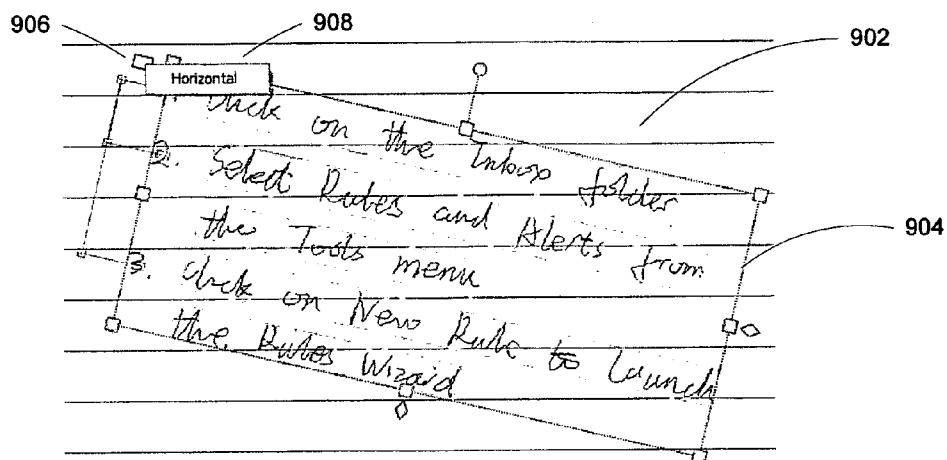 906
908
902
Horizontal
1. Click on the Inbox folder
2. Select Rules and Alerts from
the Tools menu
904
3. Click on New Rule to launch
the Rules Wizard